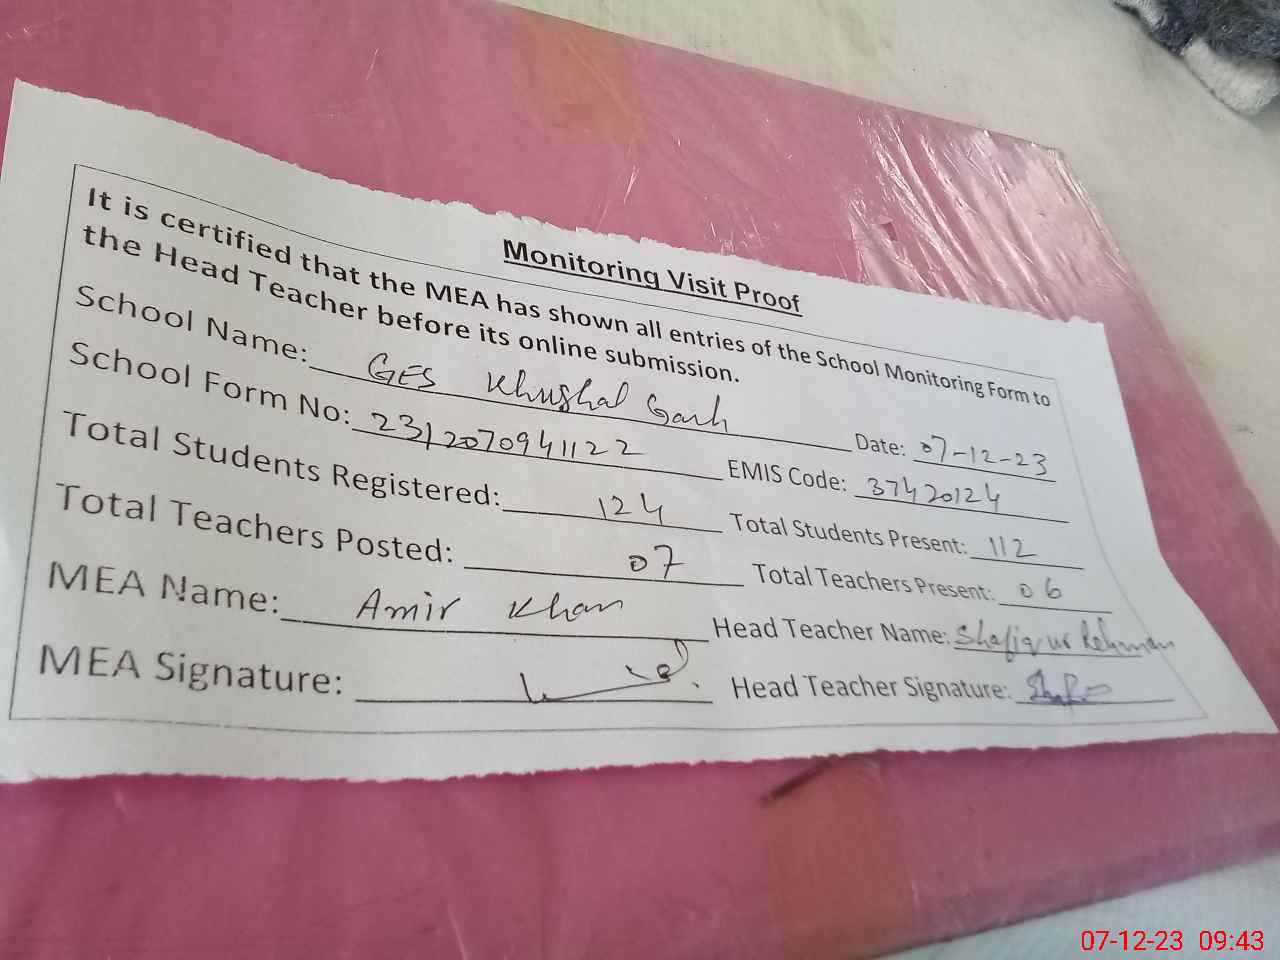 Monitoring Visit Proof
It is certified that the MEA has shown all entries of the School Monitoring Form to
the Head Teacher before its online submission.
School Name: GES Khushal Garh Date: 07-12-23
School Form No: 2312070941122 EMIS Code: 37420124
Total Students Registered: 124 Total Students Present: 112
Total Teachers Posted: 07 Total Teachers Present: 06
MEA Name: Amir Khan Head Teacher Name: Shafiq ur Rehman
MEA Signature: Head Teacher Signature:
07-12-23 09:43